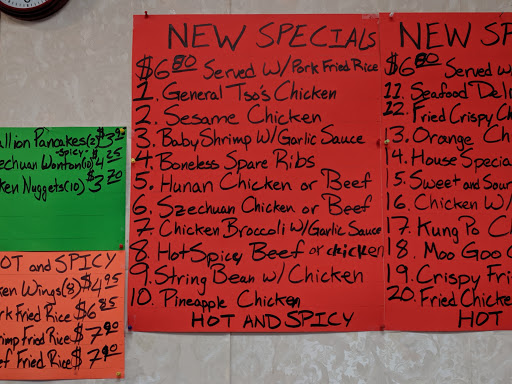 NEW SPECIALS
$6.80 Served W/Pork Fried Rice
1. General Tso's Chicken
2. Sesame Chicken
3. Baby Shrimp W/Garlic Sauce
4. Boneless Spare Ribs
5. Hunan Chicken or Beef
6. Szechuan Chicken or Beef
7. Chicken Broccoli W/Garlic Sauce
8. Hot Spicy Beef or chicken
9. String Bean W/Chicken
10. Pineapple Chicken
HOT AND SPICY
NEW SP
$6.80 Served W
11. Seafood Del
12. Fried Crispy Ch
3. Orange Ch
14. House Specia
5. Sweet and Sour
16. Chicken W/
17. Kung Po C
18. Moo Goo G
19. Crispy Fri
20. Fried Chicke
HOT
allion Pancakes(2)
-spicy-
zechuan Wonton(10) $4.25
ken Nuggets(10) $3.20
OT and SPICY
en Wings(8) $4.95
rk Fried Rice $6.85
rimp Fried Rice $7.90
ef Fried Rice $7.90